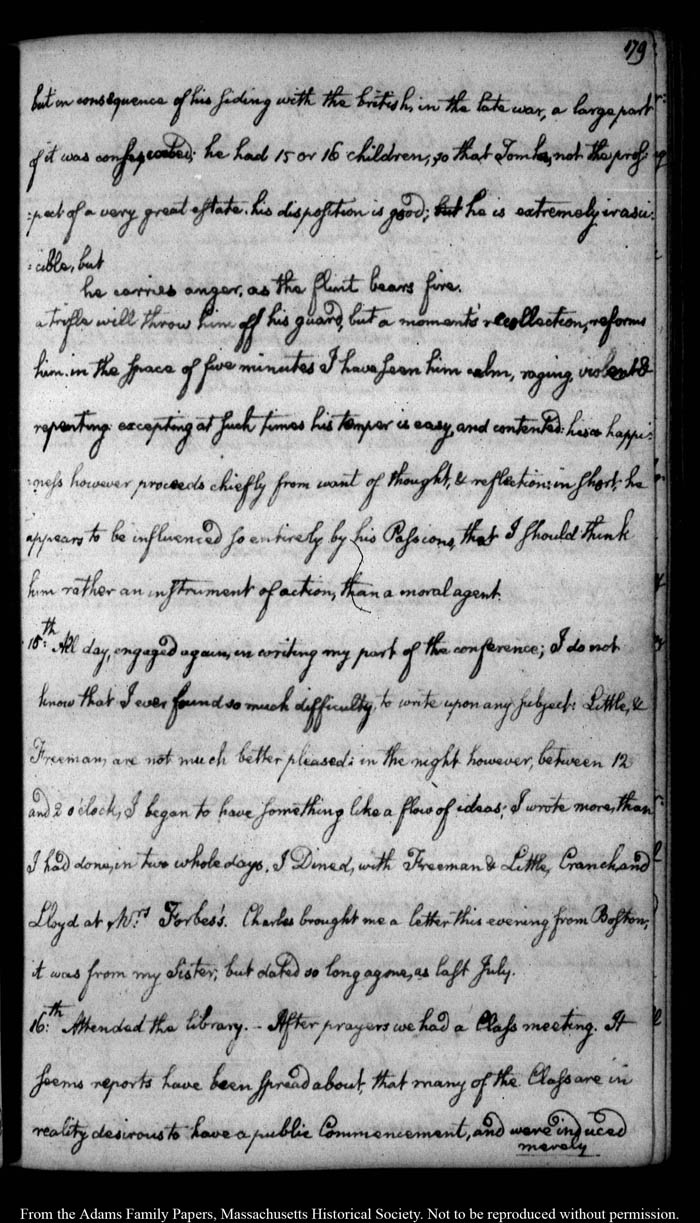 179
but in consequence of his siding with the british, in the late war, a large part
of it was confiscated: he had 15 or 16 children, so that Tom has not the pros-
:pect of a very great estate. his disposition is good; but he is extremely irasci:
:cible, but
he carries anger, as the flint bears fire.
a trifle will throw him off his guard, but a moment's recollection, reforms
him. in the space of five minutes I have seen him calm, raging, violent &
repenting. excepting at such times his temper is easy, and contented: his happi:
:ness however proceeds chiefly from want of thought, & reflection: in short, he
appears to be influenced so entirely by his Passions, that I should think
him rather an instrument of action, than a moral agent.
15:th All day, engaged again, in writing my part of the conference; I do not
know that I ever found so much difficulty, to write upon any subject: Little, &
Freeman, are not much better pleased: in the night however, between 12
and 2 o'clock, I began to have something like a flow of ideas; I wrote more, than
I had done, in two whole days. I Dined, with Freeman & Little, Cranch, and
Lloyd at Mrs. Forbes's. Charles brought me a letter this evening from Boston,
it was from my Sister, but dated so long agone, as last July.
16:th Attended the library. - After prayers we had a Class meeting. It
seems reports have been spread about, that many of the Class are in
reality desirous to have a public Commencement, and were induced
merely
From the Adams Family Papers, Massachusetts Historical Society. Not to be reproduced without permission.